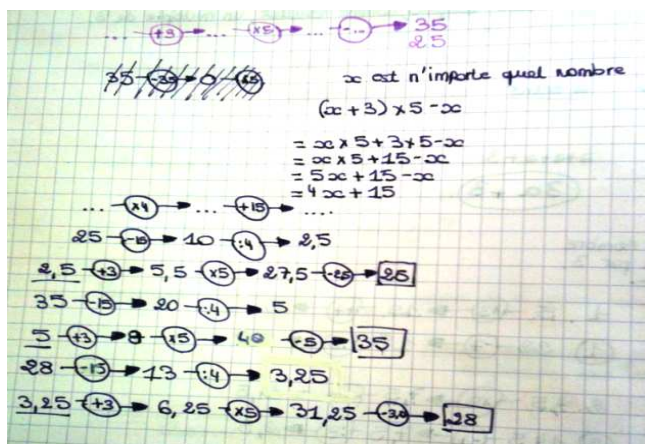 ... +3 → ... ×5 → ... -... → 35
25
35 -35 → 0 ×5
x est n'importe quel nombre
(x + 3) × 5 - x
= x × 5 + 3 × 5 - x
= x × 5 + 15 - x
= 5x + 15 - x
= 4x + 15
... ×4 → ... +15 → ....
25 -15 → 10 :4 → 2,5
2,5 +3 → 5,5 ×5 → 27,5 -2,5 → 25
35 -15 → 20 :4 → 5
5 +3 → 8 ×5 → 40 -5 → 35
28 -15 → 13 :4 → 3,25
3,25 +3 → 6,25 ×5 → 31,25 → 28